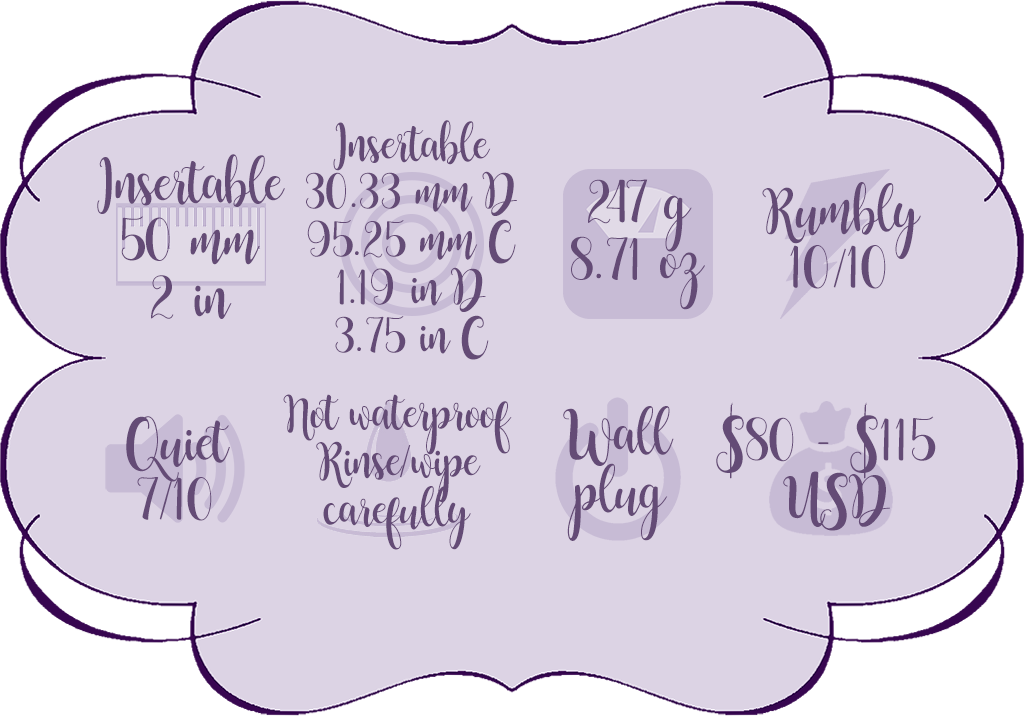 Insertable
50 mm
2 in
Insertable
30.33 mm D
95.25 mm C
1.19 in D
3.75 in C
247 g
8.71 oz
Rumbly
10/10
Quiet
7/10
Not waterproof
Rinse/wipe
carefully
Wall
plug
$80 - $115
USD